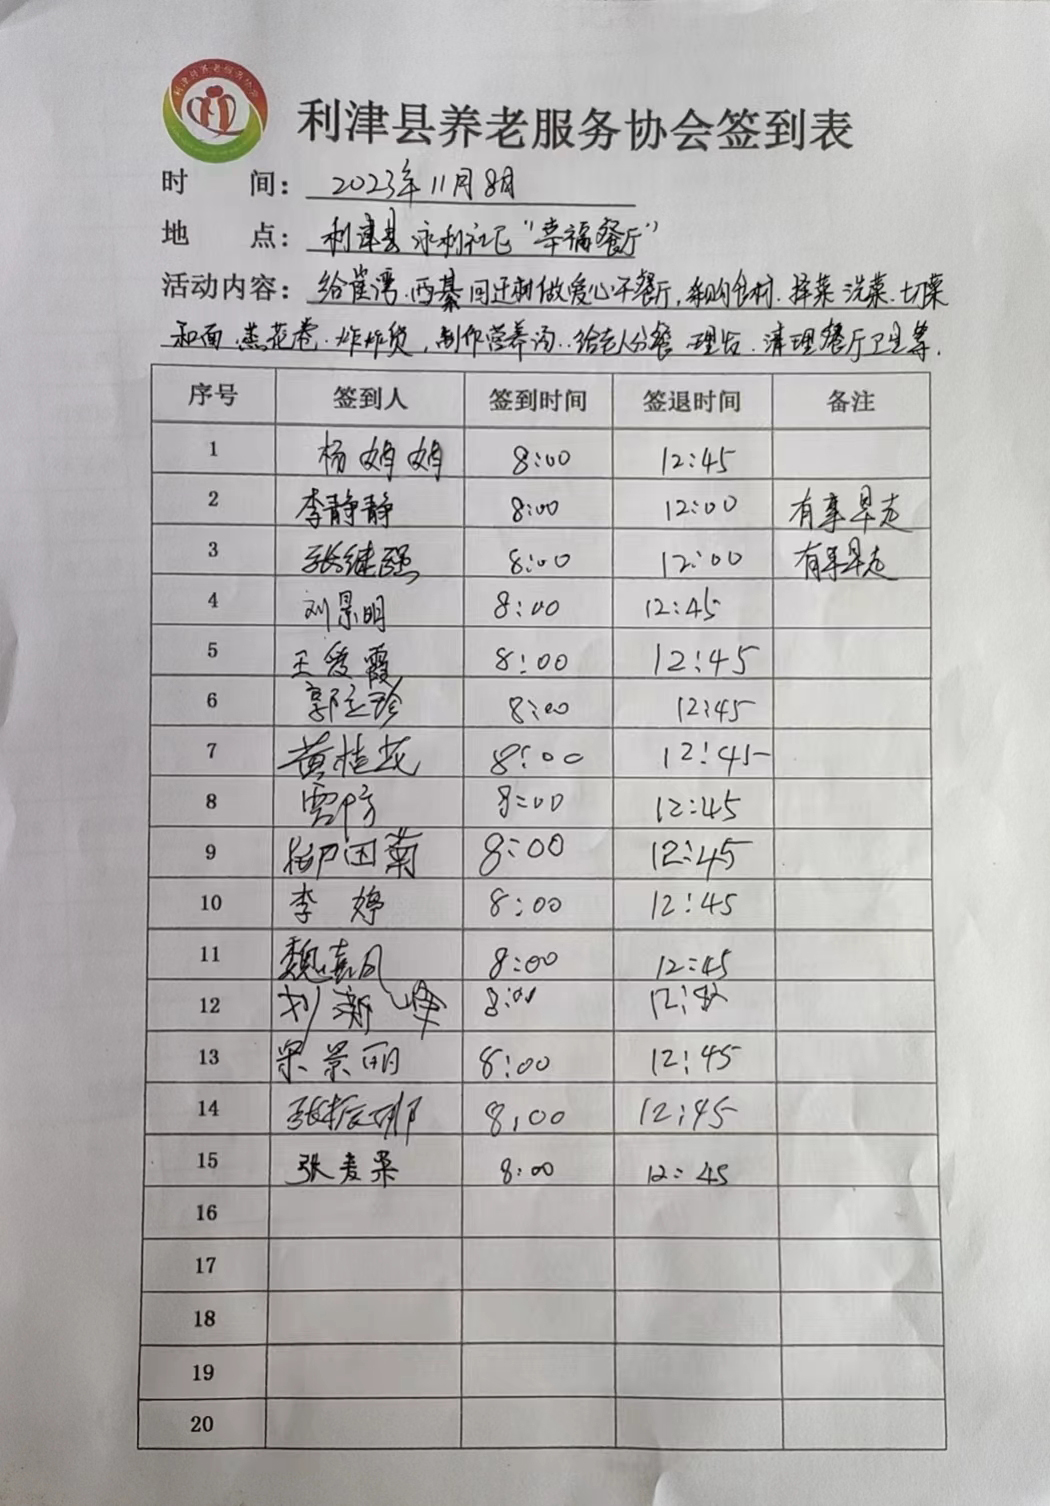 利津县养老服务协会
利津县养老服务协会签到表
时 间： 2023年11月8日
地 点： 利津县永利社区“幸福餐厅”
活动内容： 给崔湾.西綦回迁户做爱心午餐厅,采购食材.择菜.洗菜.切菜
和面.蒸花卷.炸炸货,制作营养汤.给老人分餐.理发.清理餐厅卫生等.
序号 签到人 签到时间 签退时间 备注
1 杨娟娟 8:00 12:45
2 李静静 8:00 12:00 有事早走
3 张继强 8:00 12:00 有事早走
4 刘景明 8:00 12:45
5 王爱霞 8:00 12:45
6 郭立珍 8:00 12:45
7 黄桂花 8:00 12:45
8 8:00 12:45
9 8:00 12:45
10 李婷 8:00 12:45
11 魏嘉凤 8:00 12:45
12 刘新峰 8:00
13 景丽 8:00 12:45
14 张振娜 8:00 12:45
15 张麦果 8:00 12:45
16
17
18
19
20